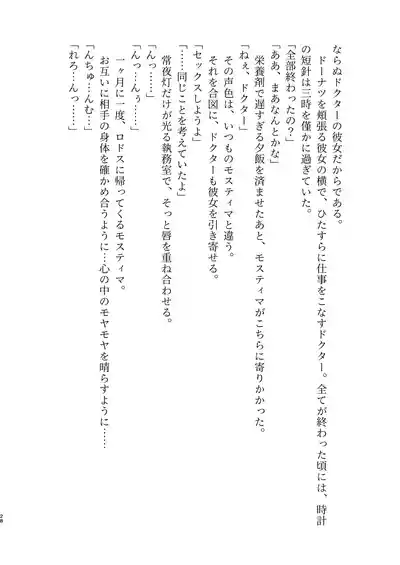 ならぬドクターの彼女だからである。
ドーナツを頬張る彼女の横で、ひたすらに仕事をこなすドクター。全てが終わった頃には、時計
の短針は三時を僅かに過ぎていた。
「全部終わったの？」
「ああ、まあなんとかな」
栄養剤で遅すぎる夕飯を済ませたあと、モスティマがこちらに寄りかかった。
「ねぇ、ドクター」
その声色は、いつものモスティマと違う。
それを合図に、ドクターも彼女を引き寄せる。
「セックスしようよ」
「……同じことを考えていたよ」
常夜灯だけが光る執務室で、そっと唇を重ね合わせる。
「んっ……」
「んっ…んぅ……」
一ヶ月に一度、ロドスに帰ってくるモスティマ。
お互いに相手の身体を確かめ合うように…心の中のモヤモヤを晴らすように……
「んちゅ…んむ……」
「れろ…んっ……」
28